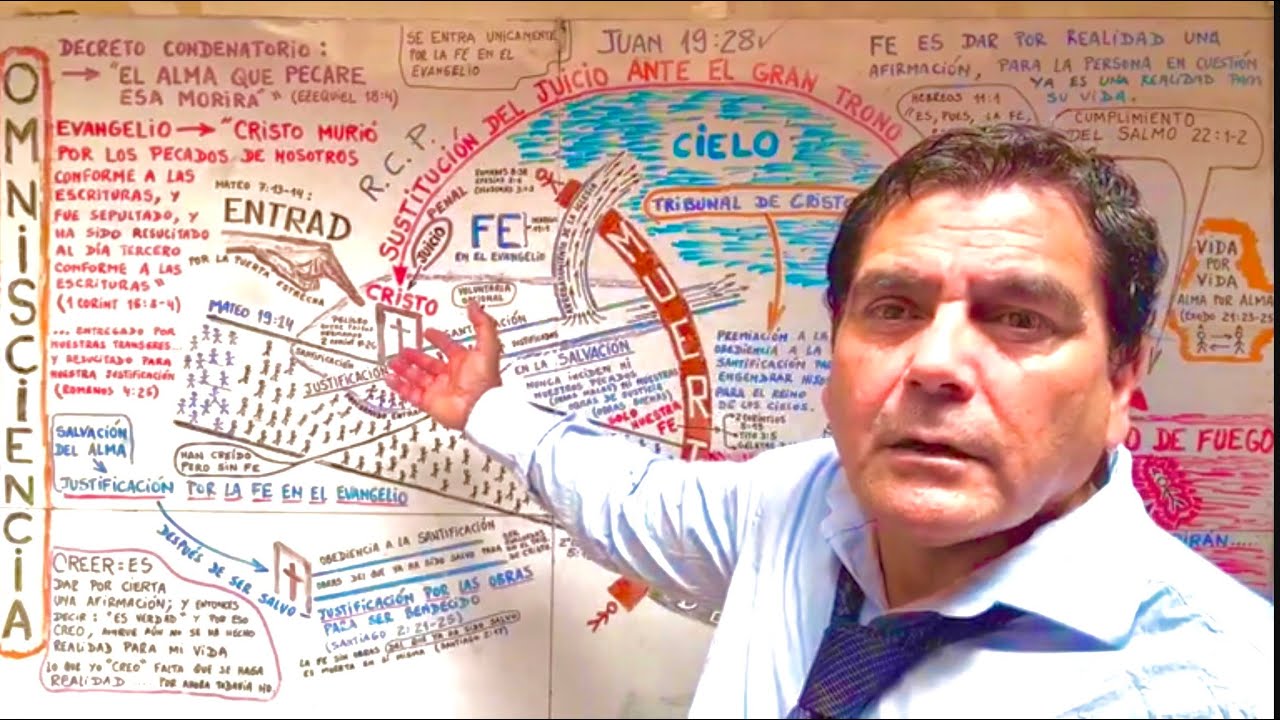 OMNISCIENCIA
DECRETO CONDENATORIO:
"EL ALMA QUE PECARE
ESA MORIRA" (EZEQUIEL 18:4)
EVANGELIO → "CRISTO MURIÓ
POR LOS PECADOS DE NOSOTROS
CONFORME A LAS
ESCRITURAS, Y
FUE SEPULTADO, Y
HA SIDO RESUCITADO
AL DÍA TERCERO
CONFORME A LAS
ESCRITURAS"
... ENTREGADO POR
Y RESUCITADO PARA
NUESTRA JUSTIFICACIÓN
(ROMANOS 4:25)
SALVACIÓN
DEL ALMA
JUSTIFICACIÓN POR LA FE EN EL EVANGELIO
DESPUÉS DE SER SALVO
CREER: ES
DAR POR CIERTA
UNA AFIRMACIÓN; Y ENTONCES
DECIR: "ES VERDAD" Y POR ESO
CREO, AUNQUE AÚN NO SE HA HECHO
REALIDAD PARA MI VIDA
LO QUE YO "CREO" FALTA QUE SE HAGA
REALIDAD ... POR AHORA TODAVÍA NO.
SE ENTRA UNICAMENTE
POR LA FE EN EL
EVANGELIO
JUAN 19:28
R.C.P.
SUSTITUCIÓN DEL JUICIO ANTE EL GRAN TRONO
MATEO 7:13-14:
ENTRAD
POR LA PUERTA
ESTRECHA
JUICIO PENAL
FE
EN EL EVANGELIO
CRISTO
VOLUNTARIA
MATEO 19:14
SANTIFICACIÓN
JUSTIFICACIÓN
HAN CREÍDO
PERO SIN FE
EN LA SALVACIÓN
NUNCA INCIDEN NI
NUESTROS PECADOS
(OBRAS MALAS) NI NUESTRAS
OBRAS DE JUSTICIA
(OBRAS BUENAS)
SOLO NUESTRA
FE
MUERT
CIELO
TRIBUNAL DE CRISTO
PREMIACIÓN A LA
OBEDIENCIA A LA
SANTIFICACIÓN PA
ENGENDRAR HIJOS
PARA EL REINO
DE LOS CIELOS.
TITO 3:5
OBEDIENCIA A LA SANTIFICACIÓN
OBRAS DEL QUE YA HA SIDO SALVO PARA
JUSTIFICACIÓN POR LAS OBRAS
PARA SER BENDECIDO
(SANTIAGO 2:21-25)
LA FE SIN OBRAS DEL QUE YA HA SIDO SALVO
ES MUERTA EN SÍ MISMA (SANTIAGO 2:17)
FE ES DAR POR REALIDAD UNA
AFIRMACIÓN, PARA LA PERSONA EN CUESTIÓN
YA ES UNA REALIDAD PARA
SU VIDA.
HEBREOS 11:1
"ES, PUES, LA FE,
CUMPLIMIENTO
DEL SALMO 22:1-2
VIDA
POR
VIDA
ALMA POR ALMA
(Exodo 21:23-25)
O DE FUEGO
IRÁN....